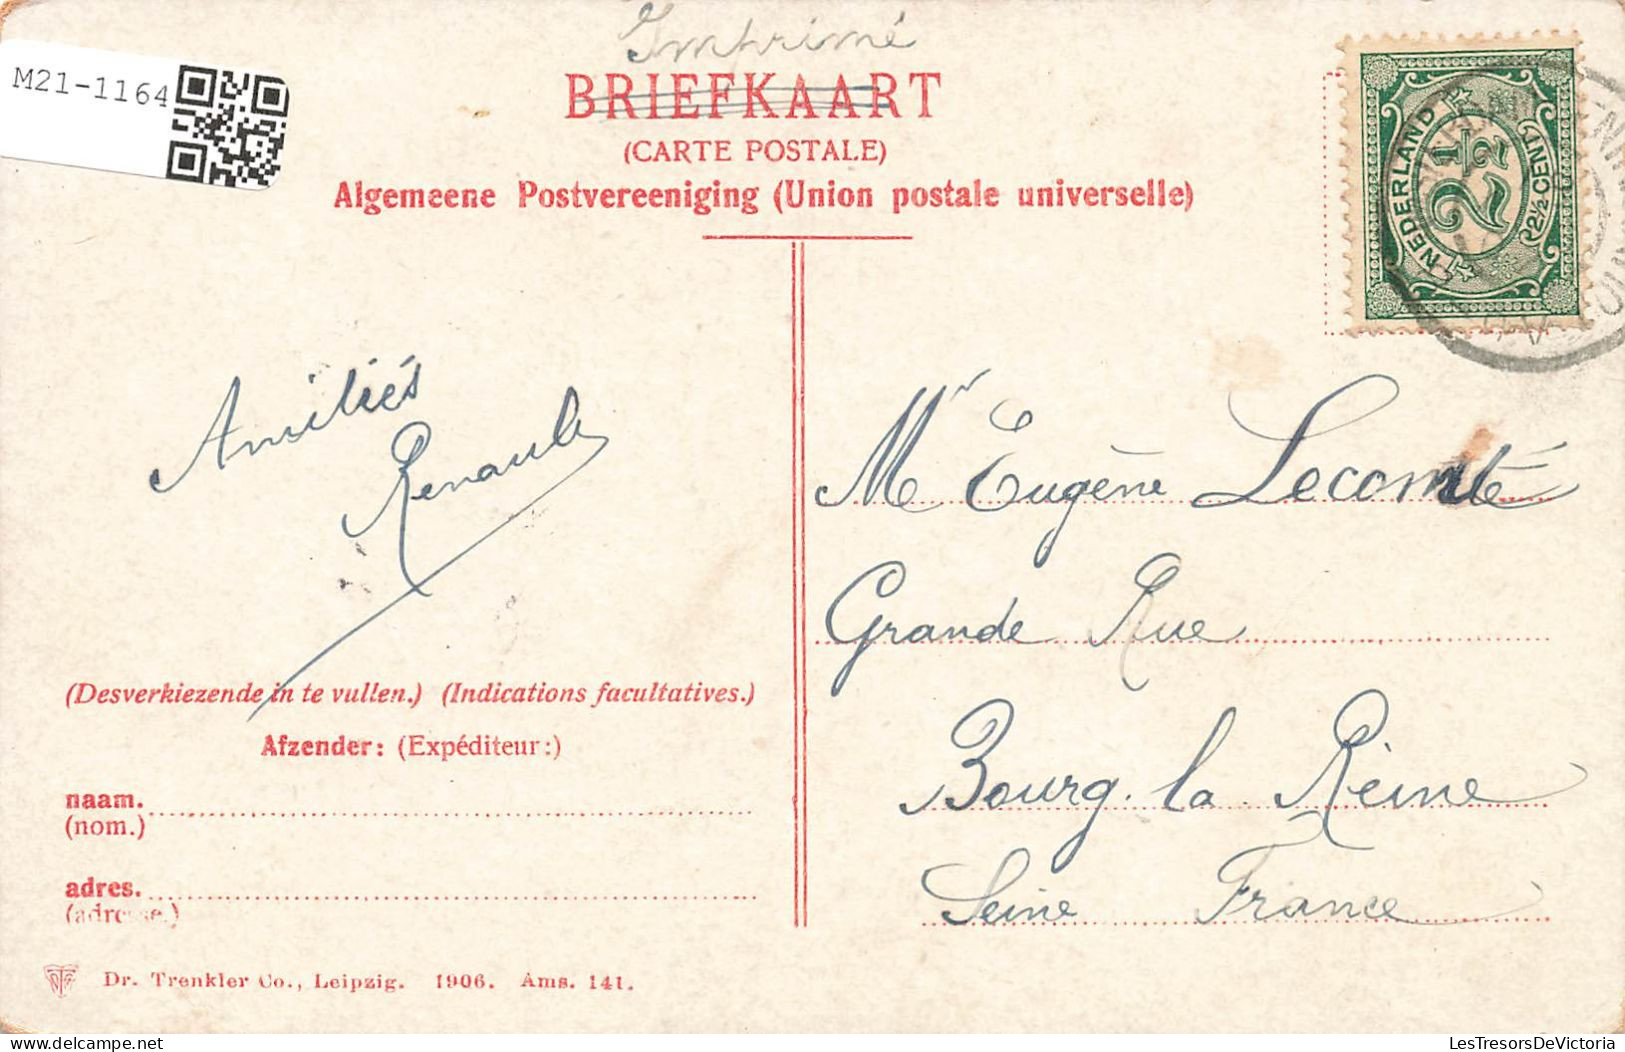 Imprimé
M21-1164
BRIEFKAART
(CARTE POSTALE)
Algemeene Postvereeniging (Union postale universelle)
NEDERLAND
2½
2½ CENT
Amitiés
Renault
Mr Eugène Lecomte
Grande Rue
Bourg. la Reine
Seine France
(Desverkiezende in te vullen.) (Indications facultatives.)
Afzender: (Expéditeur:)
naam.
(nom.)
adres.
(adresse.)
Dr. Trenkler Co., Leipzig. 1906. Ams. 141.
LesTresorsDeVictoria